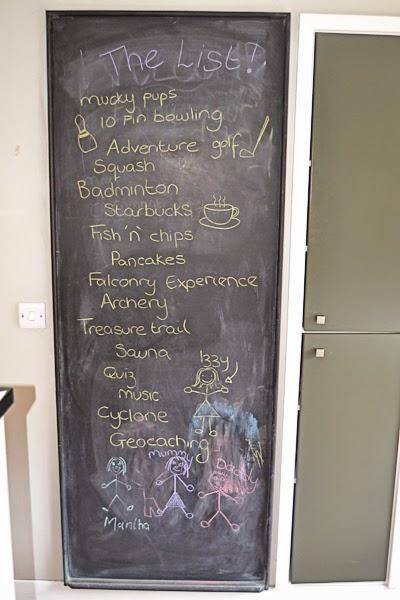 The List!
mucky pups
10 Pin bowling
Adventure golf
Squash
Badminton
Starbucks
Fish 'n' chips
Pancakes
Falconry Experience
Archery
Treasure trail
Sauna
Izzy
Quiz
music
Cyclone
Geocaching
mummy
Daddy